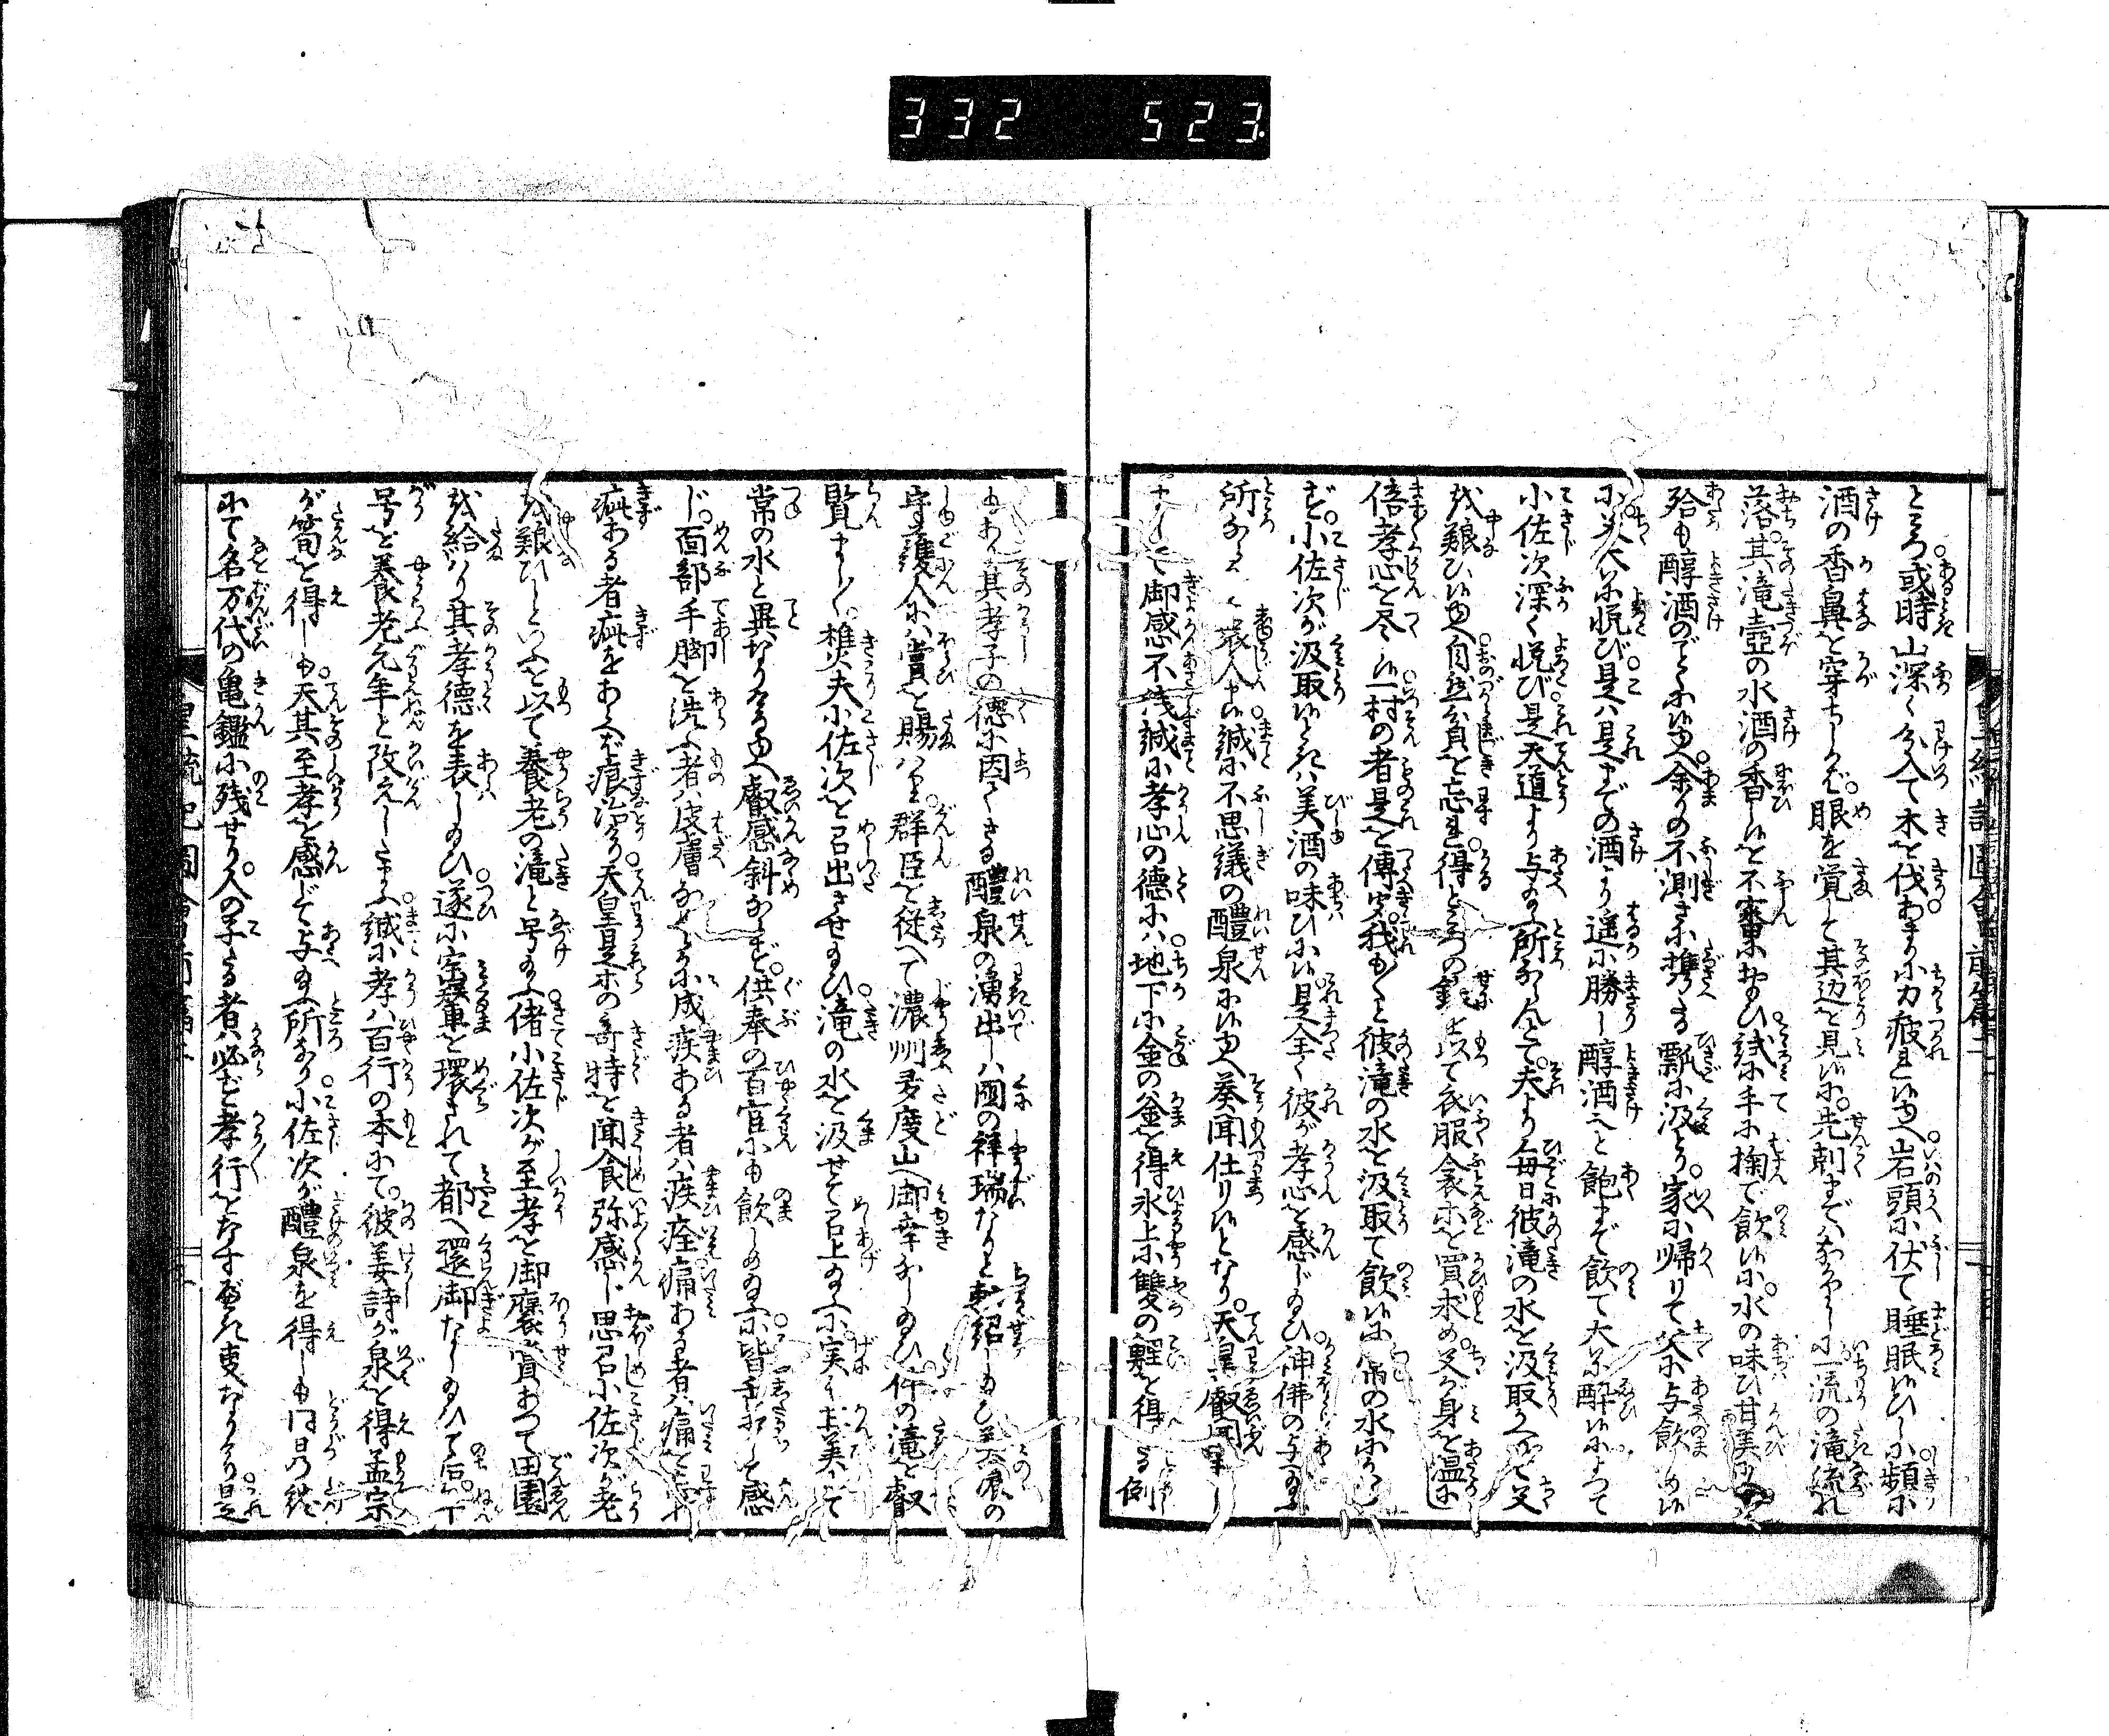 332 523.
ころ或時山深く分入て木を伐あまりに力疲れ候ゆへ岩頭に伏て睡眠候ひしに頻に
酒の香鼻を穿ちしかば眼を覚して其辺を見候に先刻まではなかりしに一流の滝流れ
落其滝壺の水酒の香しいと不審におもひ試に手に掬て飲候に水の味ひ甘美
殆も醇酒のごとくに候ゆへ余りの不測さに携たる瓢に汲とり家に帰りて父に与飲しめ候
に父大に悦び是は是までの酒より遥に勝し醇酒と飽まで飲て大に酔候によつて
小佐次深く悦び是天道より与る所ならんとて夫より毎日彼滝の水を汲取かへりて父
を養ひ候ゆへ自然貧を忘れ得ところの銭を以て衣服衾等を買求め父が身を温に
倍孝心を尽し候一村の者是を伝聞我も〳〵と彼滝の水を汲取て飲候に常の水にかはら
ず小佐次が汲取候へば美酒の味ひに候是全く彼が孝心を感じ給ひ神佛の与へ給ふ
所ならんと衆人申候誠に不思議の醴泉に候ゆへ奏聞仕り候となり天皇叡聞まし
まして御感不浅誠に孝心の徳には地下に金の釜を得氷上に雙の鯉を得る例
もあり其孝子の徳に因てきる醴泉の湧出しは國の祥瑞なりと勅紹ましく美濃の
守護人には賞を賜はり群臣を従へて濃州多度山へ御幸なし給ひ件の滝を叡
覧まし〳〵樵夫小佐次を召出させ給ひ滝の水を汲せて召上給ふに実も美にして
常の水と異なりけるゆへ叡感斜ならず供奉の百官にも飲しめ給ふに皆舌打して感
じ面部手脚を洗ふ者は皮膚なめらかに成疾ある者は疾痊痛ある者は痛を忘れ
疵ある者疵をあらへば痕治けり天皇是等の奇特を聞食弥感じ思召小佐次が老
を養ひしといふを以て養老の滝と号給ふ偖小佐次が至孝を御褒賞あつて田園
を給はり其孝徳を表し給ひ遂に宝輦を環されて都へ還御なし給ひて后年
号を養老元年と改元し給ふ誠に孝は百行の本にて彼姜詩が泉を得孟宗
が筍を得しも天其至孝を感じて与る所なり小佐次が醴泉を得しも同日の談
にて名万代の亀鑑に残せり人の子たる者は必ず孝行をなすべき事なりけり是